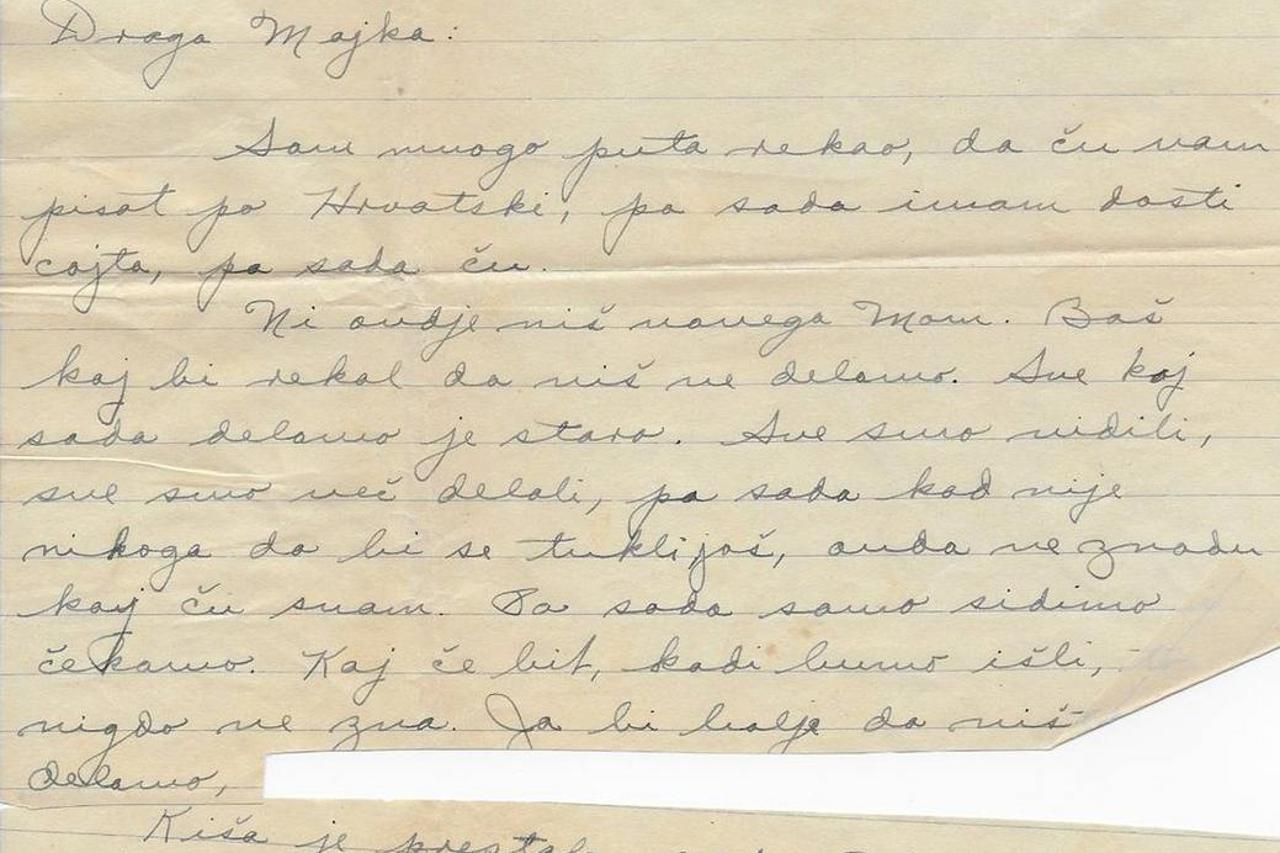 Draga Majka:
Sam mnogo puta rekao, da ču vam
pisat po Hrvatski, pa sada imam dosti
cajta, pa sada ču.
Ni ovdje niš novega Mom. Baš
kaj bi rekal da niš ne delamo. Sve kaj
sada delamo je staro. Sve smo vidili,
sve smo več delali, pa sada kad nije
nikoga da bi se tukli još, onda ne znadu
kaj ču snam. Pa sada samo sidimo
čekamo. Kaj če bit, kadi bumo išli,
nigdo ne zna. Ja bi bolje da niš
delamo,
Kiša je